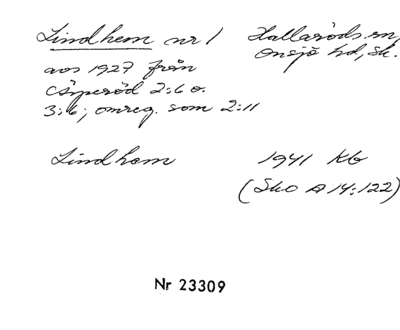 Lindhem nr 1 Hallaröds sn,
Onsjö hd, Sk.
avs 1927 från
Äsperöd 2:6 o.
3:6; omreg. som 2:11
Lindhem 1941 Kb
(Sko A 14:122)
Nr 23309